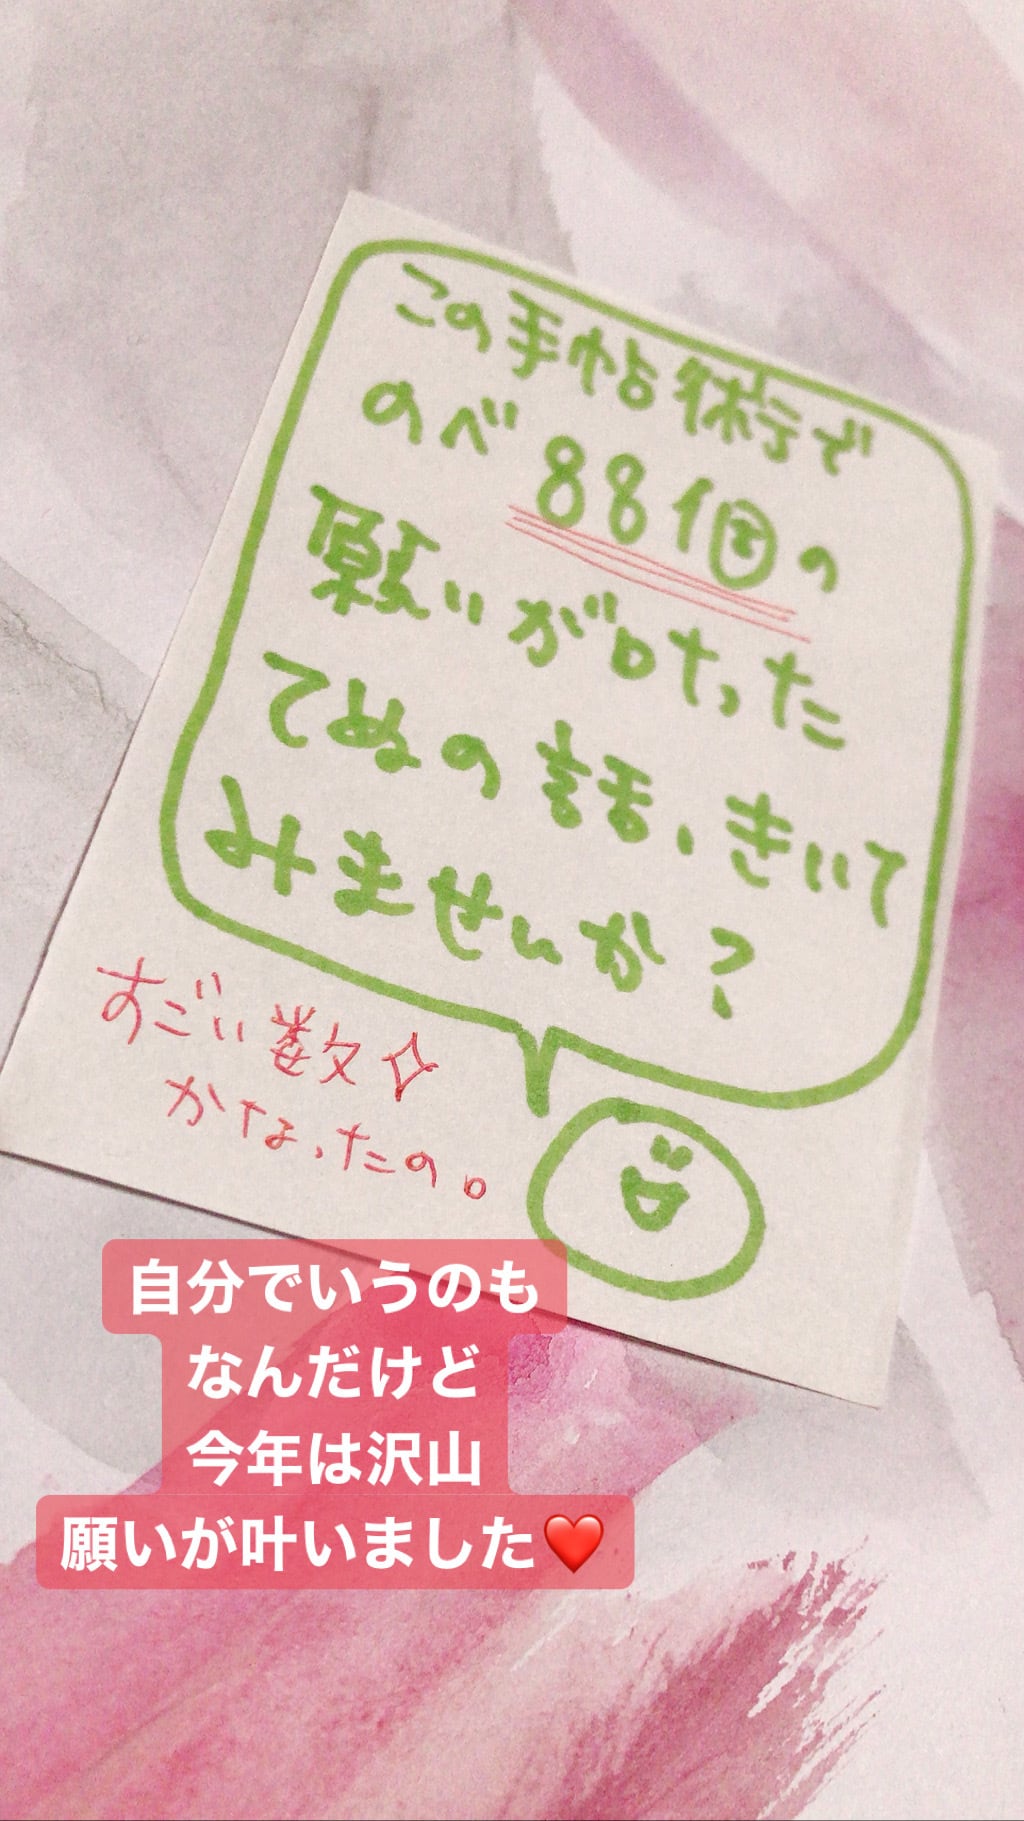 この手帖術で
のべ88個の
願いが叶った
てぬの話、きいて
みませんか?
すごい数✧
かなったの。
自分でいうのも
なんだけど
今年は沢山
願いが叶いました❤️